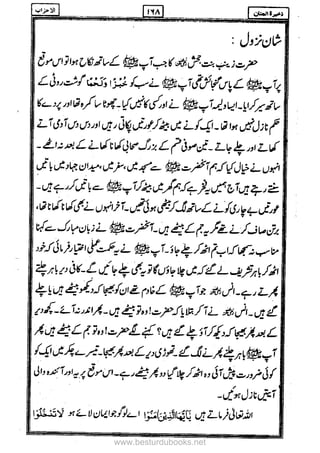 ذخیرۃ الجنان ۱۶۸ الاحزاب
شان نزول :
حضرت زینب بنت جحش ؓ کا جب آپ ﷺ کے ساتھ نکاح ہوا تو اس موقع
پر آپ ﷺ کے پاس گنجائش تھی آپ ﷺ نے سب کو خُبْزًا وَّلَحْمًا گوشت روٹی کے
ساتھ سیر کرایا۔ ایسا ولیمہ آپ ﷺ نے اور کسی کا نہیں کیا۔ چھوٹا سا کمرہ تھا اور پردے کا
حکم نازل نہیں ہوا تھا۔ ایک کونے میں بیٹھ کر عورتیں پکاتی رہیں اور دس دس آدمی آتے
کھاتے اور چلے جاتے۔ تین صوفی قسم کے بزرگ صحابی کھانا کھانے کے بعد نہ اٹھے۔
انہوں نے خیال کیا کہ ہم آنحضرت ﷺ سے مسجد میں، سفر میں، میدان جہاد میں باتیں
سنتے رہتے ہیں آج ہمیں یہ فخر ہے کہ ہم گھر میں بیٹھ کر آپ ﷺ سے باتیں کر رہے ہیں۔
عورتیں بے چاری ایک کونے کے ساتھ لگ کر بیٹھی ہوئی تھیں۔ آخر انہوں نے بھی کھانا کھانا تھا،
برتن صاف کرنے تھے مگر یہ جم کے بیٹھے ہیں۔ آنحضرت ﷺ نے زبان مبارک سے کہنا
مناسب نہ سمجھا کہ اب تم اٹھ کر چلے جاؤ۔ آپ ﷺ نے یہ حکمت عملی اختیار فرمائی کہ خود
اٹھ کر باہر تشریف لے گئے کہ میں چلا جاؤں گا تو یہ بھی چلے جائیں گے۔ کافی دیر باہر چلتے
پھرتے رہے۔ انس ؓ جو آپ ﷺ کے خادم تھے ان کو بھیجا کہ دیکھو بیٹھے ہیں یا چلے
گئے ہیں۔ انس ؓ نے آ کر بتلایا کہ حضرت! وہ تو بیٹھے ہیں۔ پھر اندر نہ آئے۔ کچھ دیر
کے بعد پھر بھیجا کہ دیکھ کر آؤ چلے گئے ہیں؟ کہنے لگے حضرت! وہ تو جم کے بیٹھے ہیں پھر
آپ ﷺ باہر چلنے پھرنے لگ گئے۔ تھوڑی دیر کے بعد پھر بھیجا۔ تیسرے چکر میں ایک کو
کوئی ضرورت پیش آئی وہ اٹھ کر چلا گیا دو پھر بیٹھے رہے۔ اس موقع پر یہ اور آئندہ والی
آیتیں نازل ہوئیں۔
اللہ تعالیٰ فرماتے ہیں يٰٓاَيُّهَا الَّذِيْنَ اٰمَنُوْا اے لوگو جو ایمان لائے ہو لَا تَدْخُلُوْا
www.besturdubooks.net